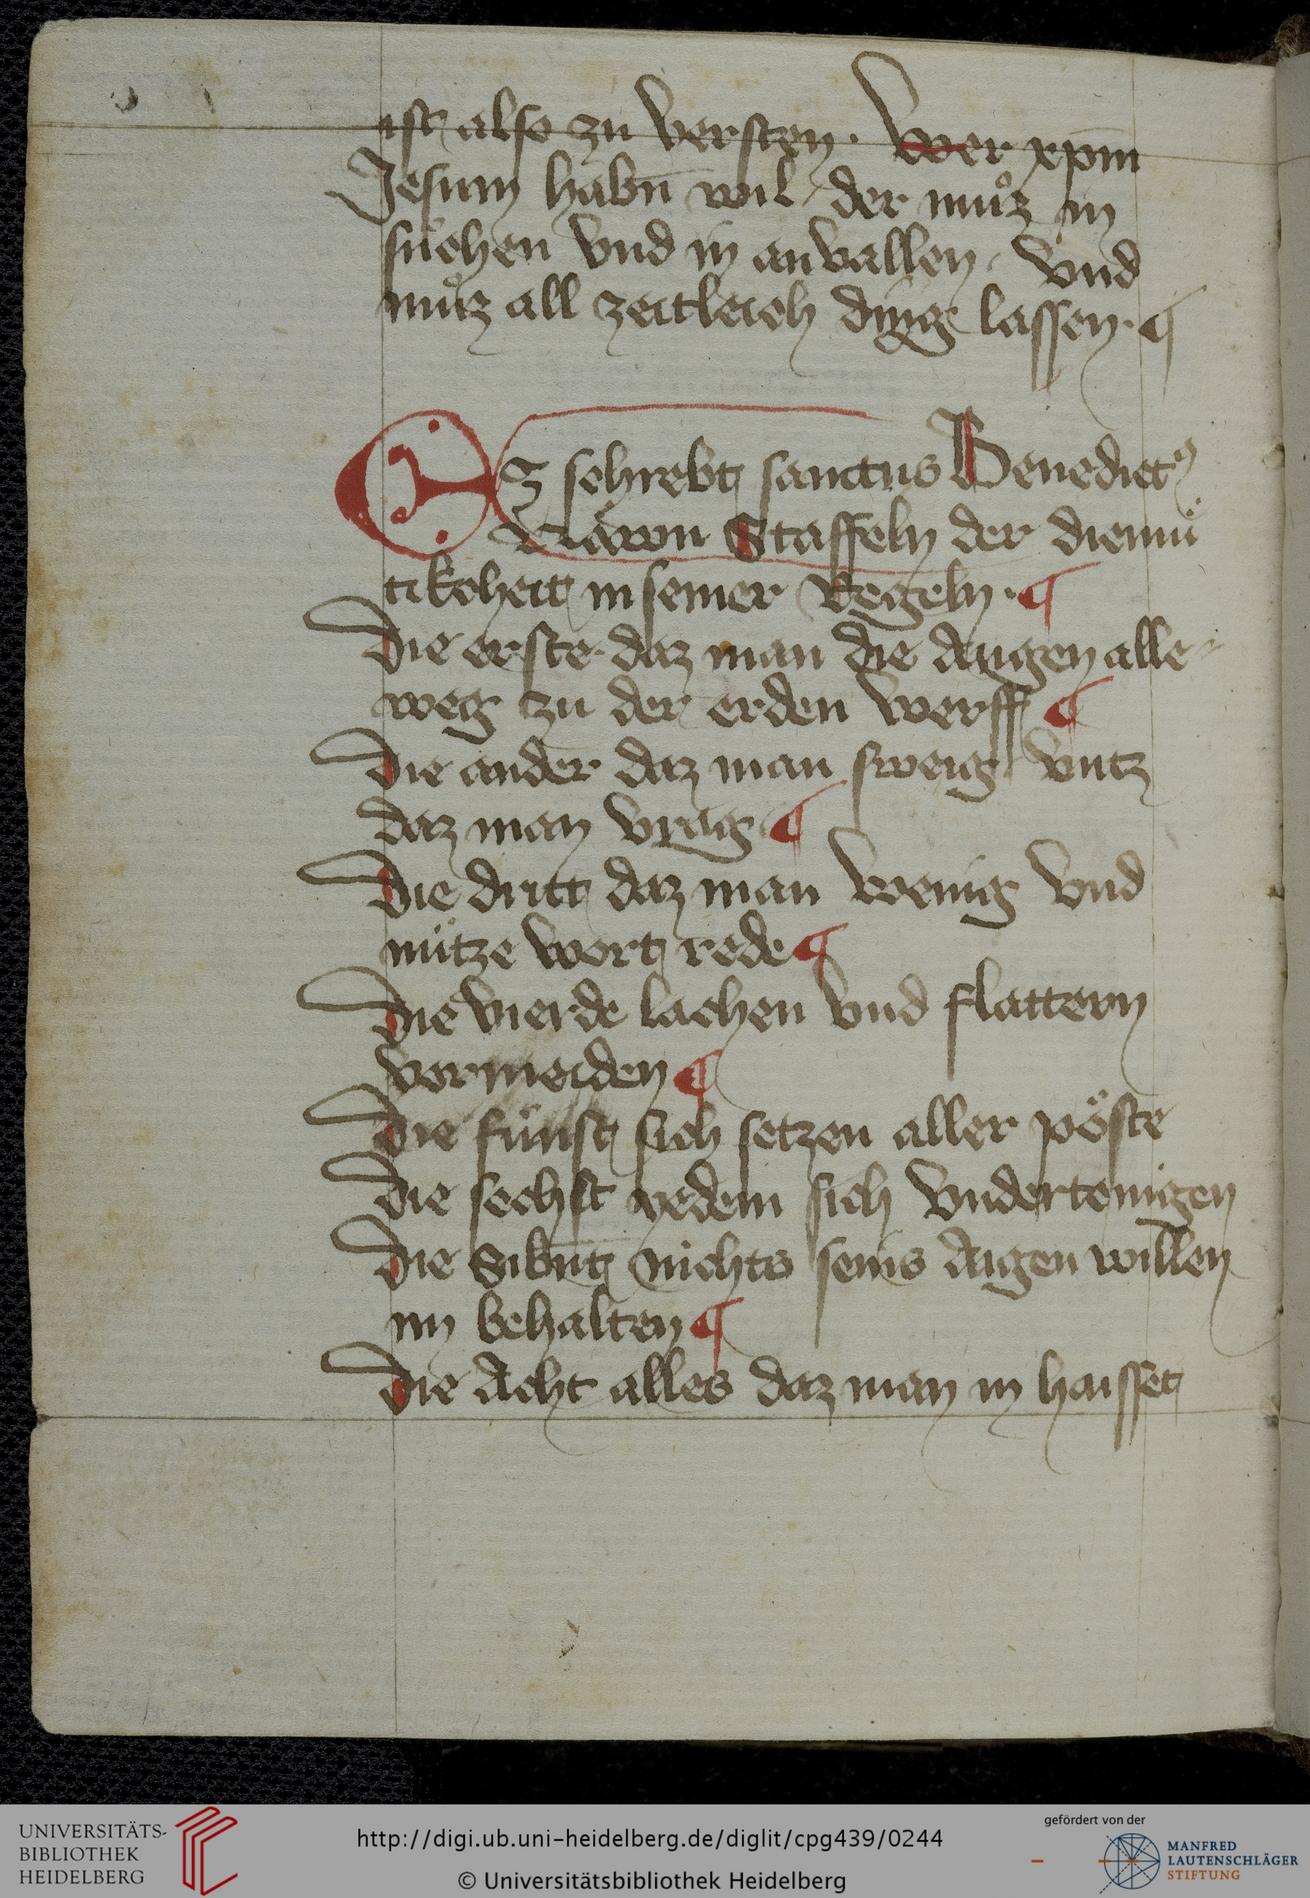 ist also zu versten · Wer xpm̄
Jesum habn̄ wil / der muͦz in
suchen vnd in anvallen / vnd
muͦz all zeitleich ding lassen · ¶
ES schrebt sanctus Benedictꝰ
von Staffeln der diemuͤ
tikcheit in seiner Regeln · ¶
Die erste · daz man die Augen alle-
weg zu der erden werff ¶
Die ander daz man sweig vntz
daz man vrag ¶
Die dritt daz man wenig vnd
nuͤtze wort rede ¶
Die vierde lachen vnd flattern
vermeiden ¶
Die fuͤnft sich setzen aller pöste
Die sechst yedem sich vndertenigen
Die Sibn̄t nichts seins Aigen willen
im behalten ¶
Die Acht alles daz man in haisset
UNIVERSITÄTS-
BIBLIOTHEK
HEIDELBERG
http://digi.ub.uni-heidelberg.de/diglit/cpg439/0244
© Universitätsbibliothek Heidelberg
gefördert von der
MANFRED
LAUTENSCHLÄGER
STIFTUNG